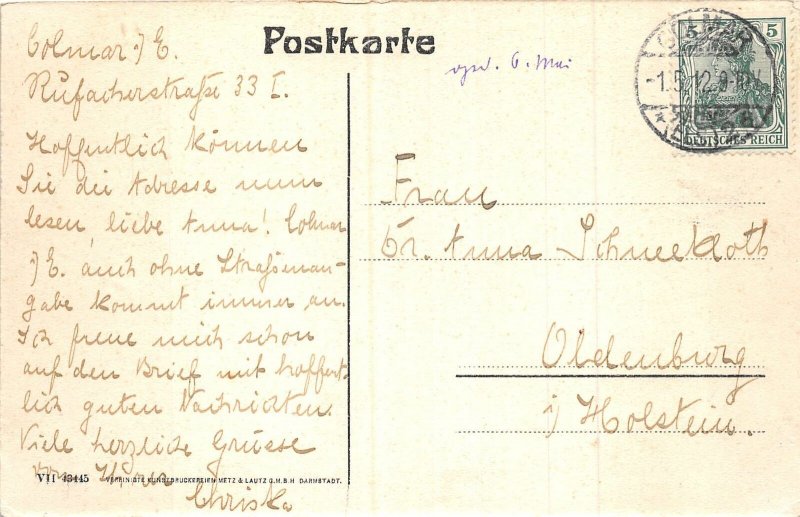 Postkarte
Colmar i/E.
Rufacherstraße 33 I.
Hoffentlich können
Sie die Adresse nun
lesen, liebe Anna! Colmar
i/E. auch ohne Straßenan-
gabe kommt immer an.
Ich freue mich schon
auf den Brief mit hoffent-
lich guten Nachrichten.
Viele herzliche Grüsse
von Ihrer
Christa
6. Mai
5 5
COLMAR
1.5.12
DEUTSCHES REICH
Frau
Dr. Anna Schneekloth
Oldenburg
i/ Holstein.
VII 43445 VEREINIGTE KUNSTDRUCKEREIEN METZ & LAUTZ G.M.B.H DARMSTADT.